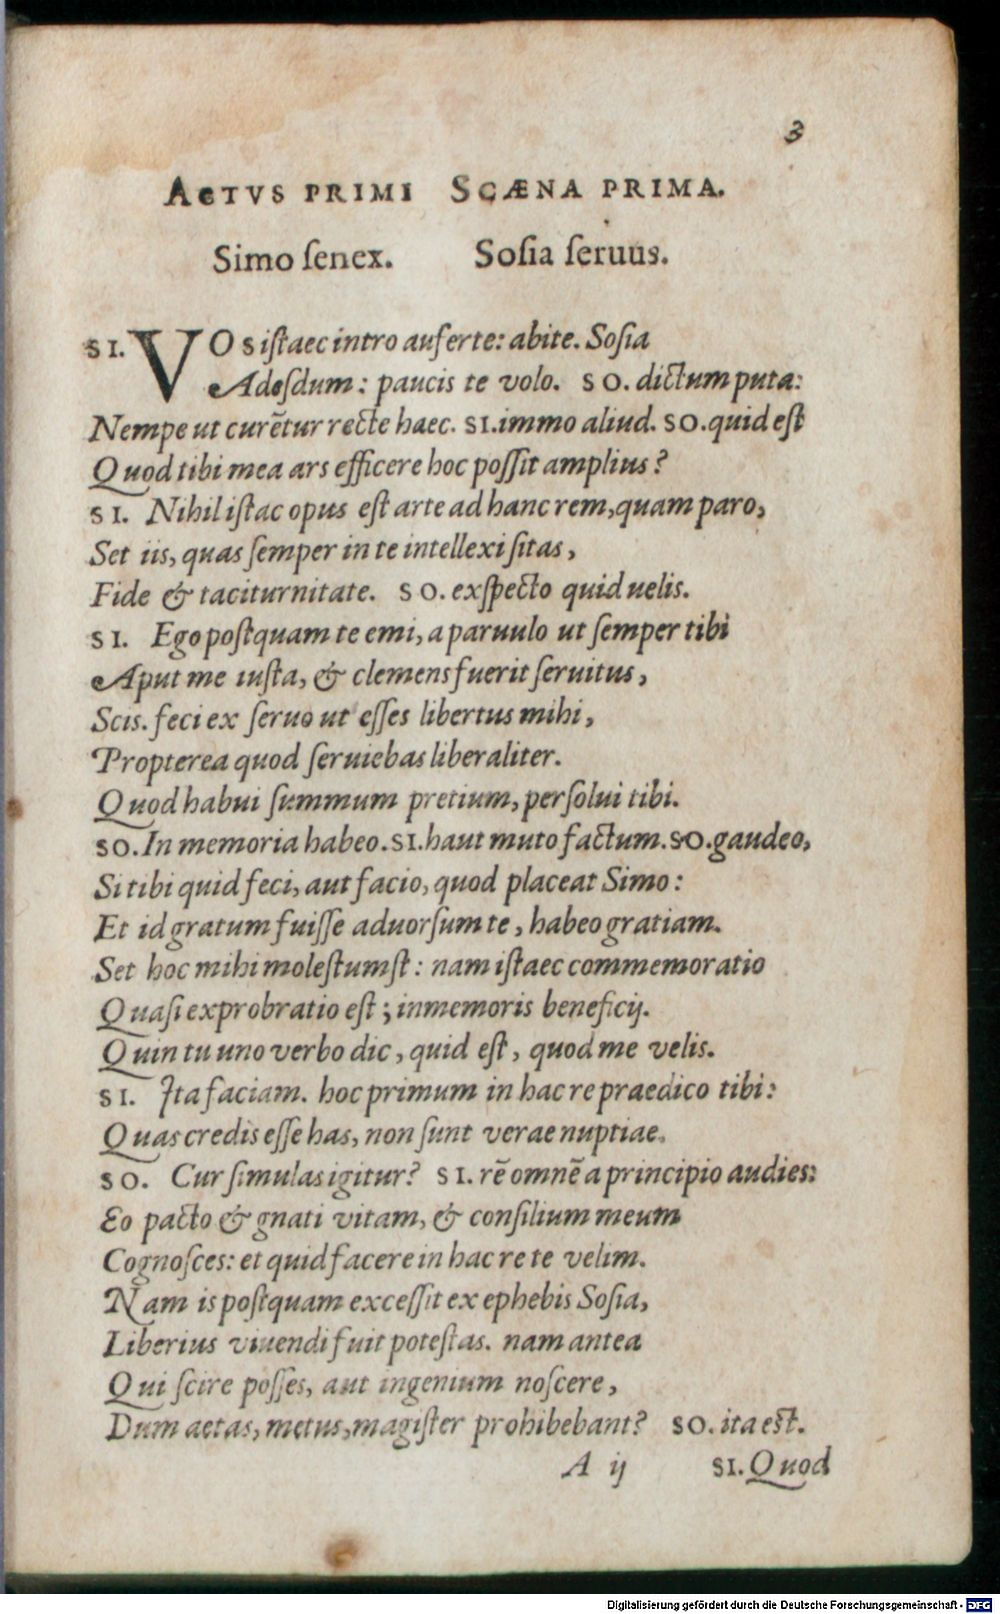 3
ACTVS PRIMI SCÆNA PRIMA.
Simo ſenex. Soſia ſeruus.
SI. VOS iſtaec intro auferte: abite. Soſia
Adeſdum: paucis te volo. SO. dictum puta:
Nempe ut curẽtur recte haec. SI. immo aliud. SO. quid eſt
Quod tibi mea ars efficere hoc poſſit amplius?
SI. Nihil iſtac opus eſt arte ad hanc rem, quam paro,
Set iis, quas ſemper in te intellexi ſitas,
Fide & taciturnitate. SO. exſpecto quid uelis.
SI. Ego poſtquam te emi, a paruulo ut ſemper tibi
Aput me iuſta, & clemens fuerit ſeruitus,
Scis. feci ex ſeruo ut eſſes libertus mihi,
Propterea quod ſeruiebas liberaliter.
Quod habui ſummum pretium, perſolui tibi.
SO. In memoria habeo. SI. haut muto factum. SO. gaudeo,
Si tibi quid feci, aut facio, quod placeat Simo:
Et id gratum fuiſſe aduorſum te, habeo gratiam.
Set hoc mihi moleſtumſt: nam iſtaec commemoratio
Quaſi exprobratio eſt; inmemoris beneficij.
Quin tu uno verbo dic, quid eſt, quod me velis.
SI. Ita faciam. hoc primum in hac re praedico tibi:
Quas credis eſſe has, non ſunt verae nuptiae.
SO. Cur ſimulas igitur? SI. rẽ omnẽ a principio audies:
Eo pacto & gnati vitam, & conſilium meum
Cognoſces: et quid facere in hac re te velim.
Nam is poſtquam exceſſit ex ephebis Soſia,
Liberius viuendi fuit poteſtas. nam antea
Qui ſcire poſſes, aut ingenium noſcere,
Dum aetas, metus, magiſter prohibebant? SO. ita eſt.
A ij SI. Quod
Digitalisierung gefördert durch die Deutsche Forschungsgemeinschaft - DFG